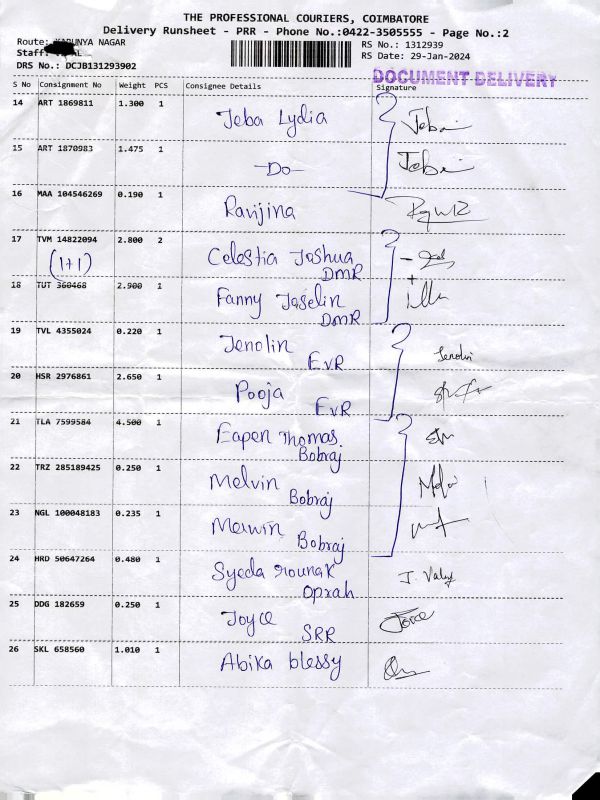 THE PROFESSIONAL COURIERS, COIMBATORE
Delivery Runsheet - PRR - Phone No.:0422-3505555 - Page No.:2
Route: KARUNYA NAGAR
RS No.: 1312939
Staff:
RS Date: 29-Jan-2024
DRS No.: DCJB131293902
DOCUMENT DELIVERY
S No Consignment No Weight PCS Consignee Details Signature
14 ART 1869811 1.300 1 Jeba Lydia Jeba
15 ART 1870983 1.475 1 -Do- Jeba
16 MAA 104546269 0.190 1 Ravijina
17 TVM 14822094 2.800 2 Celestia Joshua
(1+1) DMR
18 TUT 360468 2.900 1 Fanny Joselin
DMR
19 TVL 4355024 0.220 1 Jenolin Jenolin
EVR
20 HSR 2976861 2.650 1 Pooja
EVR
21 TLA 7599584 4.500 1 Eapen Thomas.
Bobraj
22 TRZ 285189425 0.250 1 Melvin
Bobraj
23 NGL 100048183 0.235 1 Merwin
Bobraj
24 HRD 50647264 0.480 1 Syeda rounak
Oprah
25 DDG 182659 0.250 1 Joyce
SRR
26 SKL 658560 1.010 1 Abika blessy